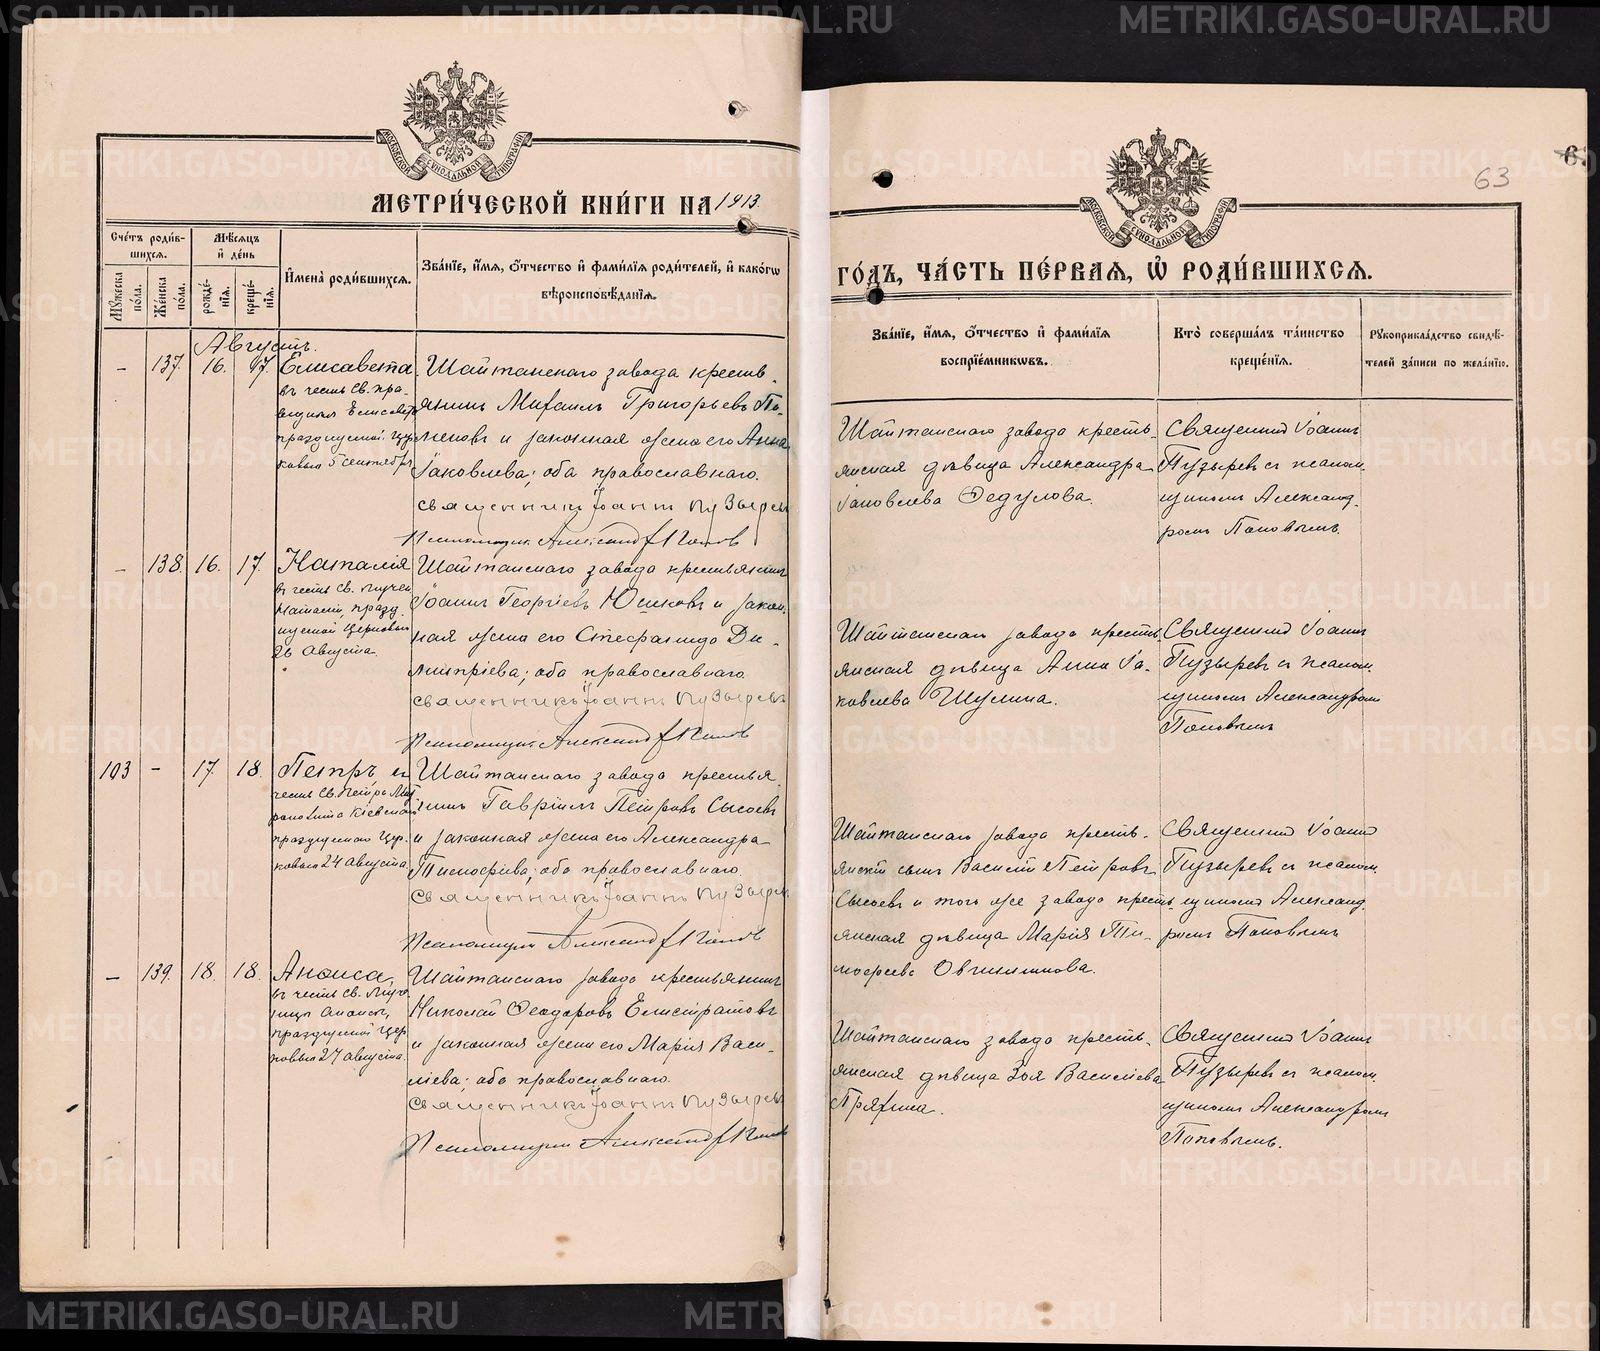 МЕТРИ́ЧЕСКОЙ КНИ́ГИ НА 1913
Сче́тъ роди́в-
шихся.
Мѣ́сяцъ
и҆ де́нь
И҆мена̀ роди́вшихся.
Зва́нїе, и҆́мя, ѻ҆́тчество и҆ фами́лїя роди́телей, и҆ како́гѡ
вѣроисповѣ́данїя.
Мꙋ́жеска
по́ла.
Же́нска
по́ла.
рожде́-
нїя.
креще́-
нїя.
Августъ.
- 137. 16. 17. Елисавета
въ честь Св. пра-
ведныя Елисаветы
празднуемой Цер-
ковью 5 сентября
Шайтанскаго завода крестья-
нинъ Михаилъ Григорьевъ
и законная жена его Анна
Іаковлева; оба православнаго.
священникъ Іоаннъ Пузырев
Псаломщик Александр Попов
- 138. 16. 17. Наталія
въ честь Св. мучен.
Наталіи, празд-
нуемой Церковью
26 Августа.
Шайтанскаго завода крестьянинъ
Іоаннъ Георгіевъ Юшковъ и закон-
ная жена его Стефанида Ди-
митріева; оба православнаго.
священникъ Іоаннъ Пузыревъ
Псаломщик Александр Попов
103 - 17. 18. Петръ, въ
честь Св. Петра Мит-
рополита Кіевскаго
празднуемаго Цер-
ковью 24 Августа.
Шайтанскаго завода крестья-
нинъ Гавріилъ Петровъ Сысоевъ
и законная жена его Александра
Тимофіева; оба православнаго.
Священникъ Іоаннъ Пузырев
Псаломщик Александр Попов
- 139. 18. 18. Анѳиса,
въ честь Св. муче-
ницы Анѳисы,
празднуемой Цер-
ковью 27 Августа.
Шайтанскаго завода крестьянинъ
Николай Ѳеодоровъ Елистратовъ
и законная жена его Марія Васи-
ліева; оба православнаго.
Священникъ Іоаннъ Пузырев
Псаломщик Александр Попов
63
ГО́ДЪ, ЧА́СТЬ ПЕ́РВАЯ, Ѽ РОДИ́ВШИХСЯ.
Зва́нїе, и҆́мя, ѻ҆́тчество и҆ фами́лїя
воспрїе́мниковъ.
Кто̀ соверша́лъ та́инство
креще́нїя.
Рꙋкоприкла́дство свидѣ́-
телей за́писи по жела́нїю.
Шайтанскаго завода кресть-
янская дѣвица Александра
Іаковлева Ѳедулова.
Священникъ Іоаннъ
Пузыревъ съ псалом-
щикомъ Александ-
ромъ Поповымъ.
Шайтанскаго завода кресть-
янская дѣвица Анна Іа-
ковлева Шулина.
Священникъ Іоаннъ
Пузыревъ съ псалом-
щикомъ Александромъ
Поповымъ
Шайтанскаго завода кресть-
янскій сынъ Василій Петровъ
Сысоевъ и того же завода кресть-
янская дѣвица Марія Ти-
мофеева Овчинникова.
Священникъ Іоаннъ
Пузыревъ съ псалом-
щикомъ Александ-
ромъ Поповымъ
Шайтанскаго завода кресть-
янская дѣвица Зоя Василіева
Пряхина.
Священникъ Іоаннъ
Пузыревъ съ псалом-
щикомъ Александромъ
Поповымъ.
METRIKI.GASO-URAL.RU